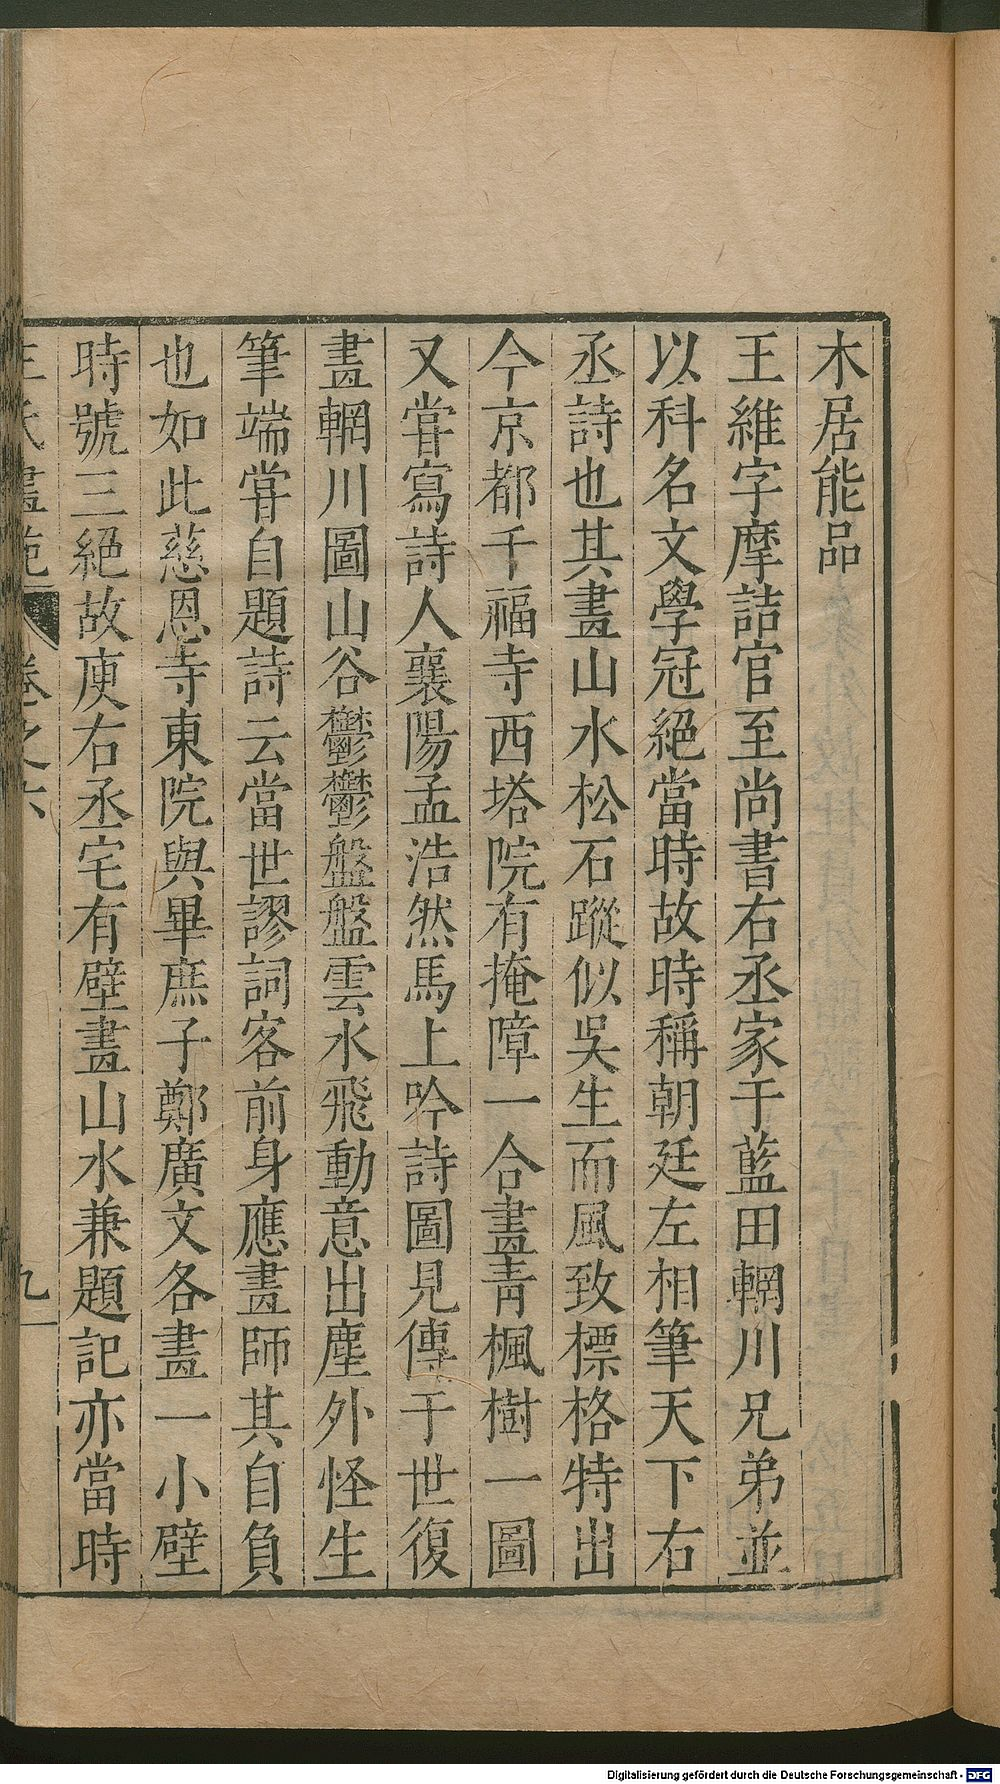 木居能品
王維字摩詰官至尚書右丞家于藍田輞川兄弟並
以科名文學冠絕當時故時稱朝廷左相筆天下右
丞詩也其畫山水松石蹤似吳生而風致標格特出
今京都千福寺西塔院有掩障一合畫青楓樹一圖
又甞寫詩人襄陽孟浩然馬上吟詩圖見傳于世復
畫輞川圖山谷鬱鬱盤盤雲水飛動意出塵外怪生
筆端甞自題詩云當世謬詞客前身應畫師其自負
也如此慈恩寺東院與畢庶子鄭廣文各畫一小壁
時號三絕故庾右丞宅有壁畫山水兼題記亦當時
王氏畫苑 卷之六 九
Digitalisierung gefördert durch die Deutsche Forschungsgemeinschaft - DFG